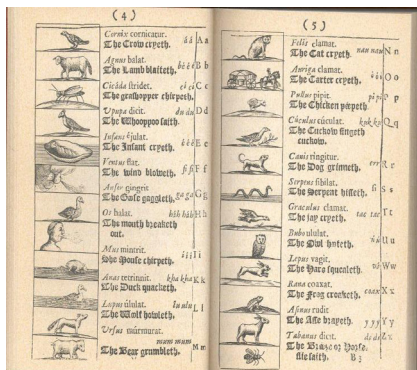 (4)
Cornix cornicatur. á á A a
The Crow cryeth.
Agnus balat. bé é é B b
The Lamb blaiteth.
Cicàda stridet. ci ci C c
The grashopper chirpeth.
Upupa dicit. du du D d
The Whooppoo saith.
Infans éjulat. é é é E e
The Infant cryeth.
Ventus flat. fi fi F f
The wind bloweth.
Anser gingrit. ga ga G g
The Goose gaggleth.
Os halat. háh háh H h
The mouth breatheth
out.
Mus mintrit. í í í I i
The Mouse chirpeth.
Anas tetrinnit. kha kha K k
The Duck quacketh.
Lupus ululat. lu ulu L l
The Wolf howleth.
Ursus múrmurat.
mum mum M m
The Bear grumbleth.
(5)
Felis clamat. nau nau N n
The Cat cryeth.
Auriga clamat. ó ó ó O o
The Carter cryeth.
Pullus pipit. pi pi P p
The Chicken peepeth
Cúculus cúculat. kuk ku Q q
The Cuckow singeth
cuckow.
Canis ringitur. err R r
The Dog grinneth.
Serpens sibilat. si S s
The Serpent hisseth.
Graculus clamat. tac tac T t
The Jay cryeth.
Bubo ululat. ú ú U u
The Owl hooteth.
Lepus vagit. vá W w
The Hare squeaketh.
Rana coaxat. coax X x
The Frog croaketh.
Asinus rudit. y y y Y y
The Asse brayeth.
Tabanus dicit. ds ds Z z
The Breeze or Horse-
flie saith.
B 3